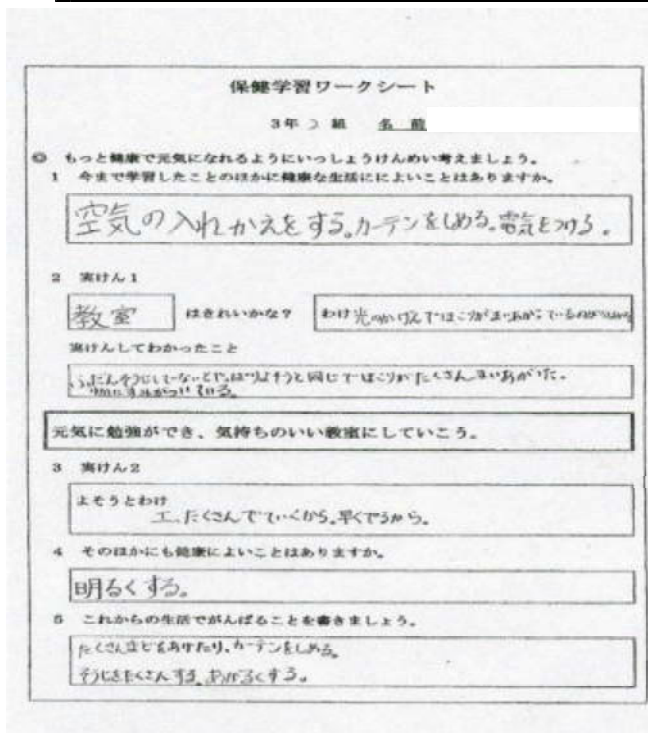 保健学習ワークシート
3年 組 名前
◎ もっと健康で元気になれるようにいっしょうけんめい考えましょう。
1 今まで学習したことのほかに健康な生活ににによいことはありますか。
空気の入れかえをする。カーテンをしめる。電気をつける。
2 実けん1
教室 はきれいかな? わけ 光の でほこりがまいあがっているのが
実けんしてわかったこと
ふだんそうじしていないとやっぱりよそうと同じでほこりがたくさんまいあがった。
元気に勉強ができ、気持ちのいい教室にしていこう。
3 実けん2
よそうとわけ
エ、たくさんでていくから。早くでるから。
4 そのほかにも健康によいことはありますか。
明るくする。
5 これからの生活でがんばることを書きましょう。
たくさんまどをあけたり、カーテンをしめる。
そうじをたくさんする。あかるくする。